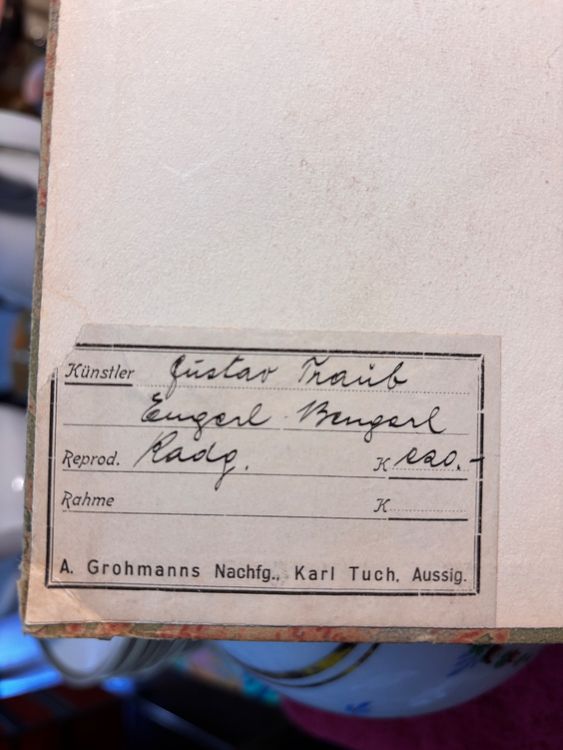 Künstler Gustav Traub
Engerl - Bengerl
Reprod. Radg. K 220.-
Rahme K
A. Grohmanns Nachfg., Karl Tuch, Aussig.